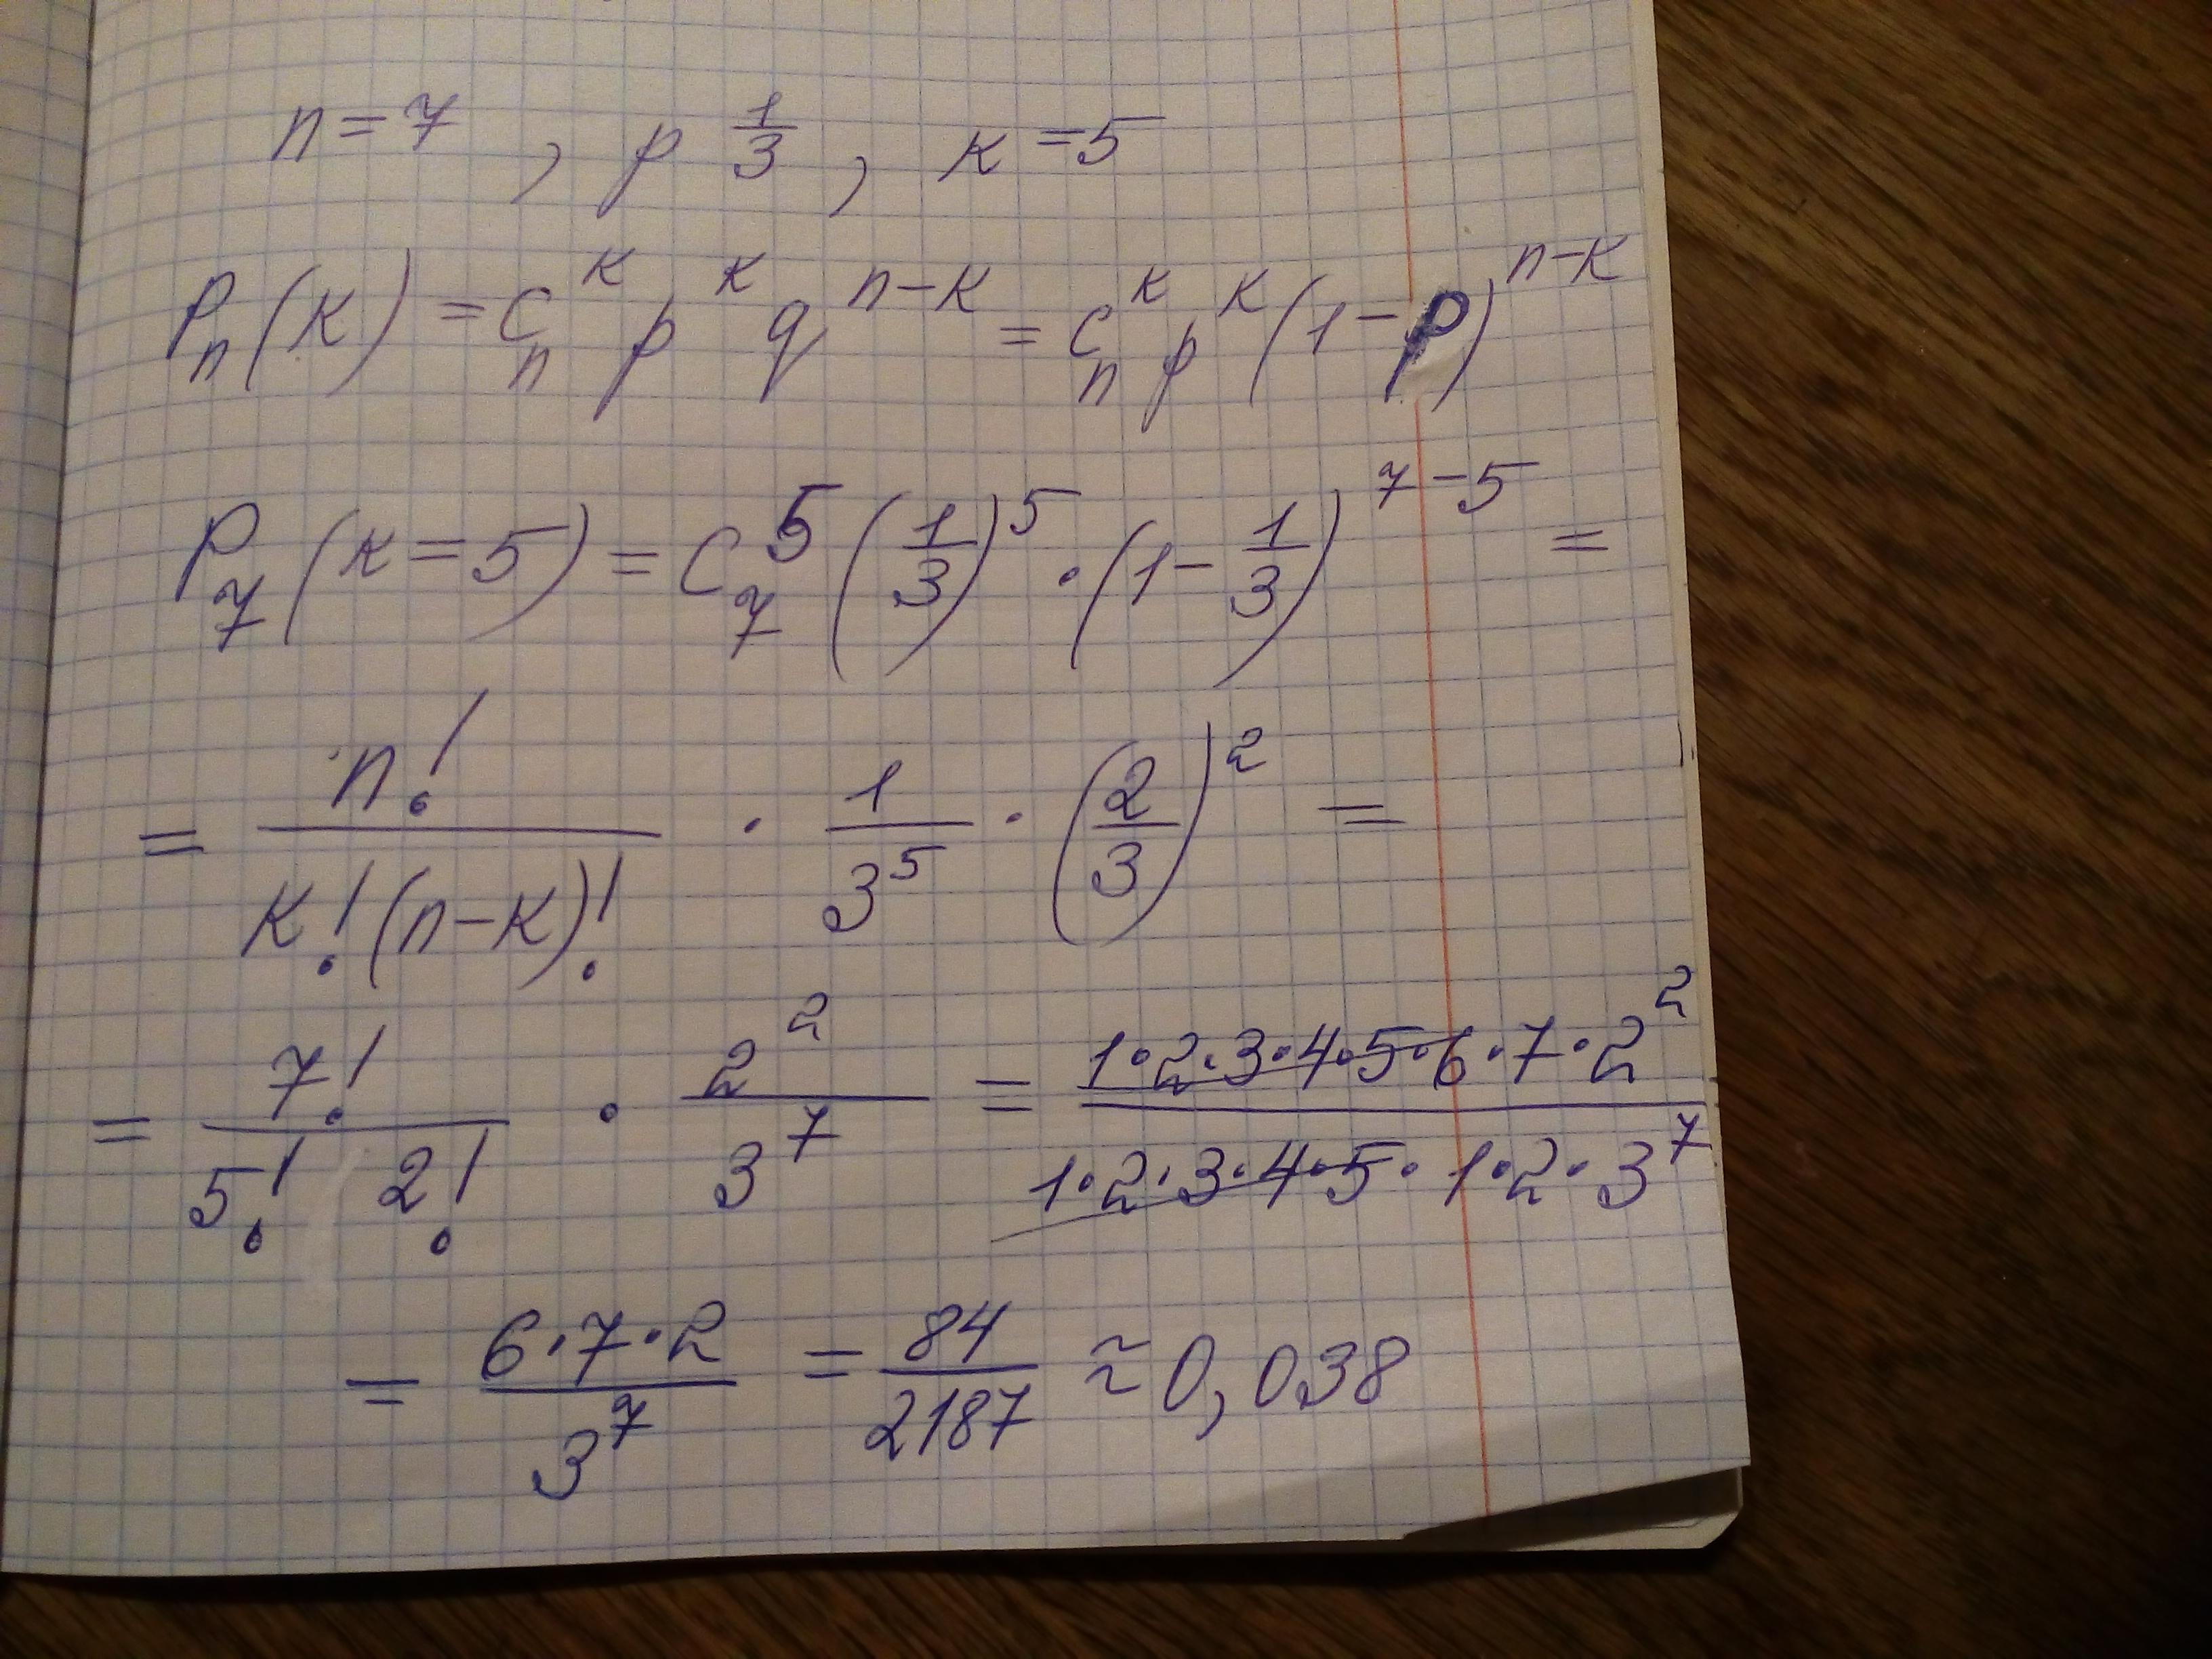 n = 7 , p 1/3 , k = 5
P_n(k) = C_n^k p^k q^(n-k) = C_n^k p^k (1-p)^(n-k)
P_7(k=5) = C_7^5 (1/3)^5 · (1 - 1/3)^(7-5) =
= n!/(k!(n-k)!) · 1/3^5 · (2/3)^2 =
= 7!/(5! 2!) · 2^2/3^7 = (1·2·3·4·5·6·7·2^2)/(1·2·3·4·5·1·2·3^7)
= (6·7·2)/3^7 = 84/2187 ≈ 0,038